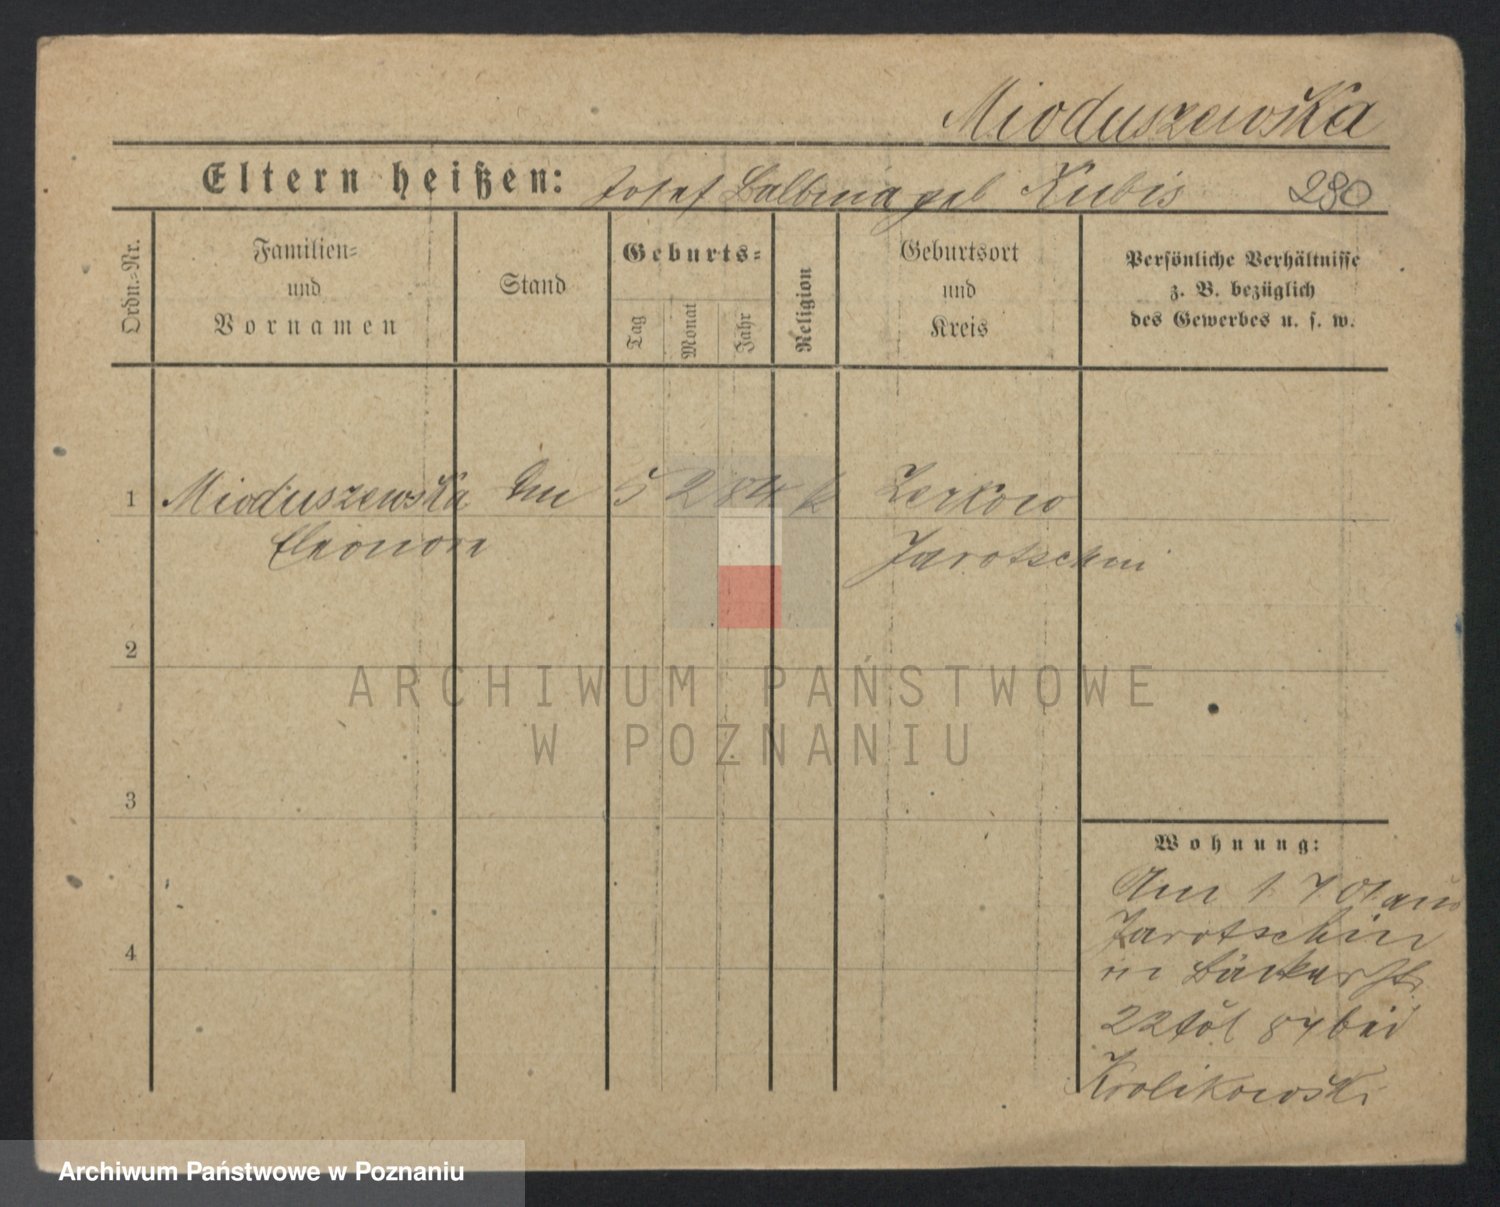 Mioduszewska
Eltern heißen: Josef Balbina geb Kubis 280
Ordn.=Nr.
Familien=
und
Vornamen
Stand
Geburts=
Tag
Monat
Jahr
Religion
Geburtsort
und
Kreis
Persönliche Verhältnisse
z. B. bezüglich
des Gewerbes u. s. w.
1 Mioduszewska 5 2 84 k Zerkow
Eleonore Jarotschin
2
ARCHIWUM PAŃSTWOWE
W POZNANIU
3
Wohnung:
Am 1 7 01 aus
Jarotschin
Bäckerstr
22 bei
4
Krolikowski
Archiwum Państwowe w Poznaniu